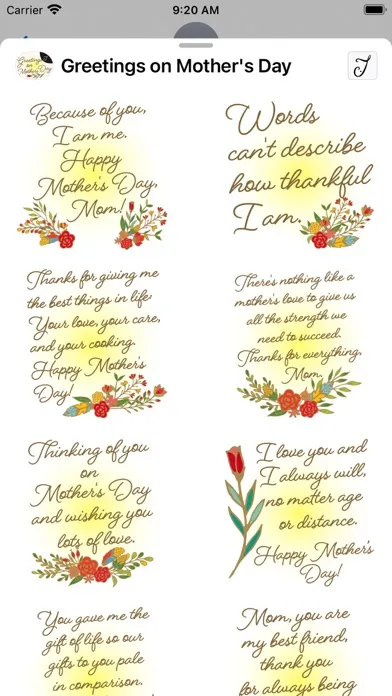 Carrier
9:20 AM
Greetings
on
Mother's Day
Greetings on Mother's Day
T
Because of you,
I am me.
Happy
Mother's Day,
Mom!
Words
can't describe
how thankful
I am.
Thanks for giving me
the best things in life:
Your love, your care,
and your cooking.
Happy Mother's
Day!
There's nothing like a
mother's love to give us
all the strength we
need to succeed.
Thanks for everything,
Mom.
Thinking of you
on
Mother's Day
and wishing you
lots of love.
I love you and
I always will,
no matter age
or distance.
Happy Mother's
Day!
You gave me the
gift of life so our
gifts to you pale
in comparison.
Mom, you are
my best friend,
thank you
for always being